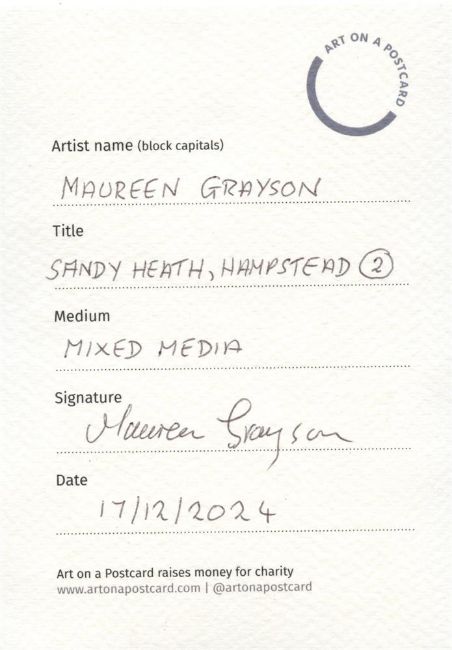 ART ON A POSTCARD
Artist name (block capitals)
MAUREEN GRAYSON
Title
SANDY HEATH, HAMPSTEAD 2
Medium
MIXED MEDIA
Signature
Maureen Grayson
Date
17/12/2024
Art on a Postcard raises money for charity
www.artonapostcard.com | @artonapostcard